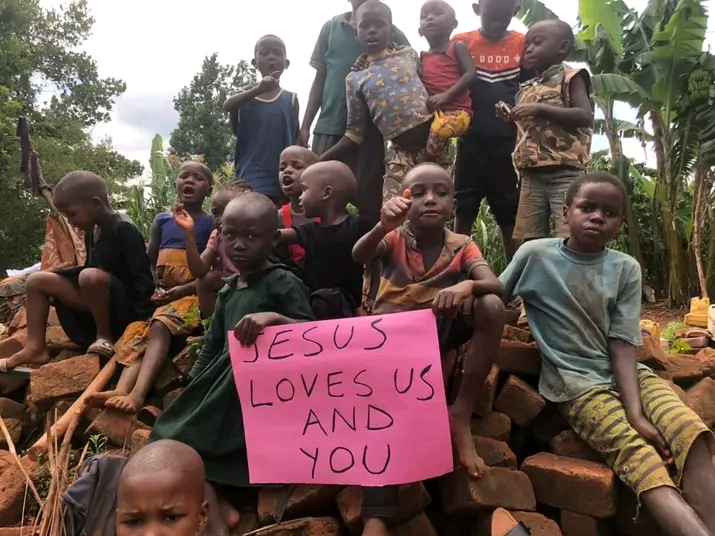 GOOD
JESUS
LOVES US
AND
YOU